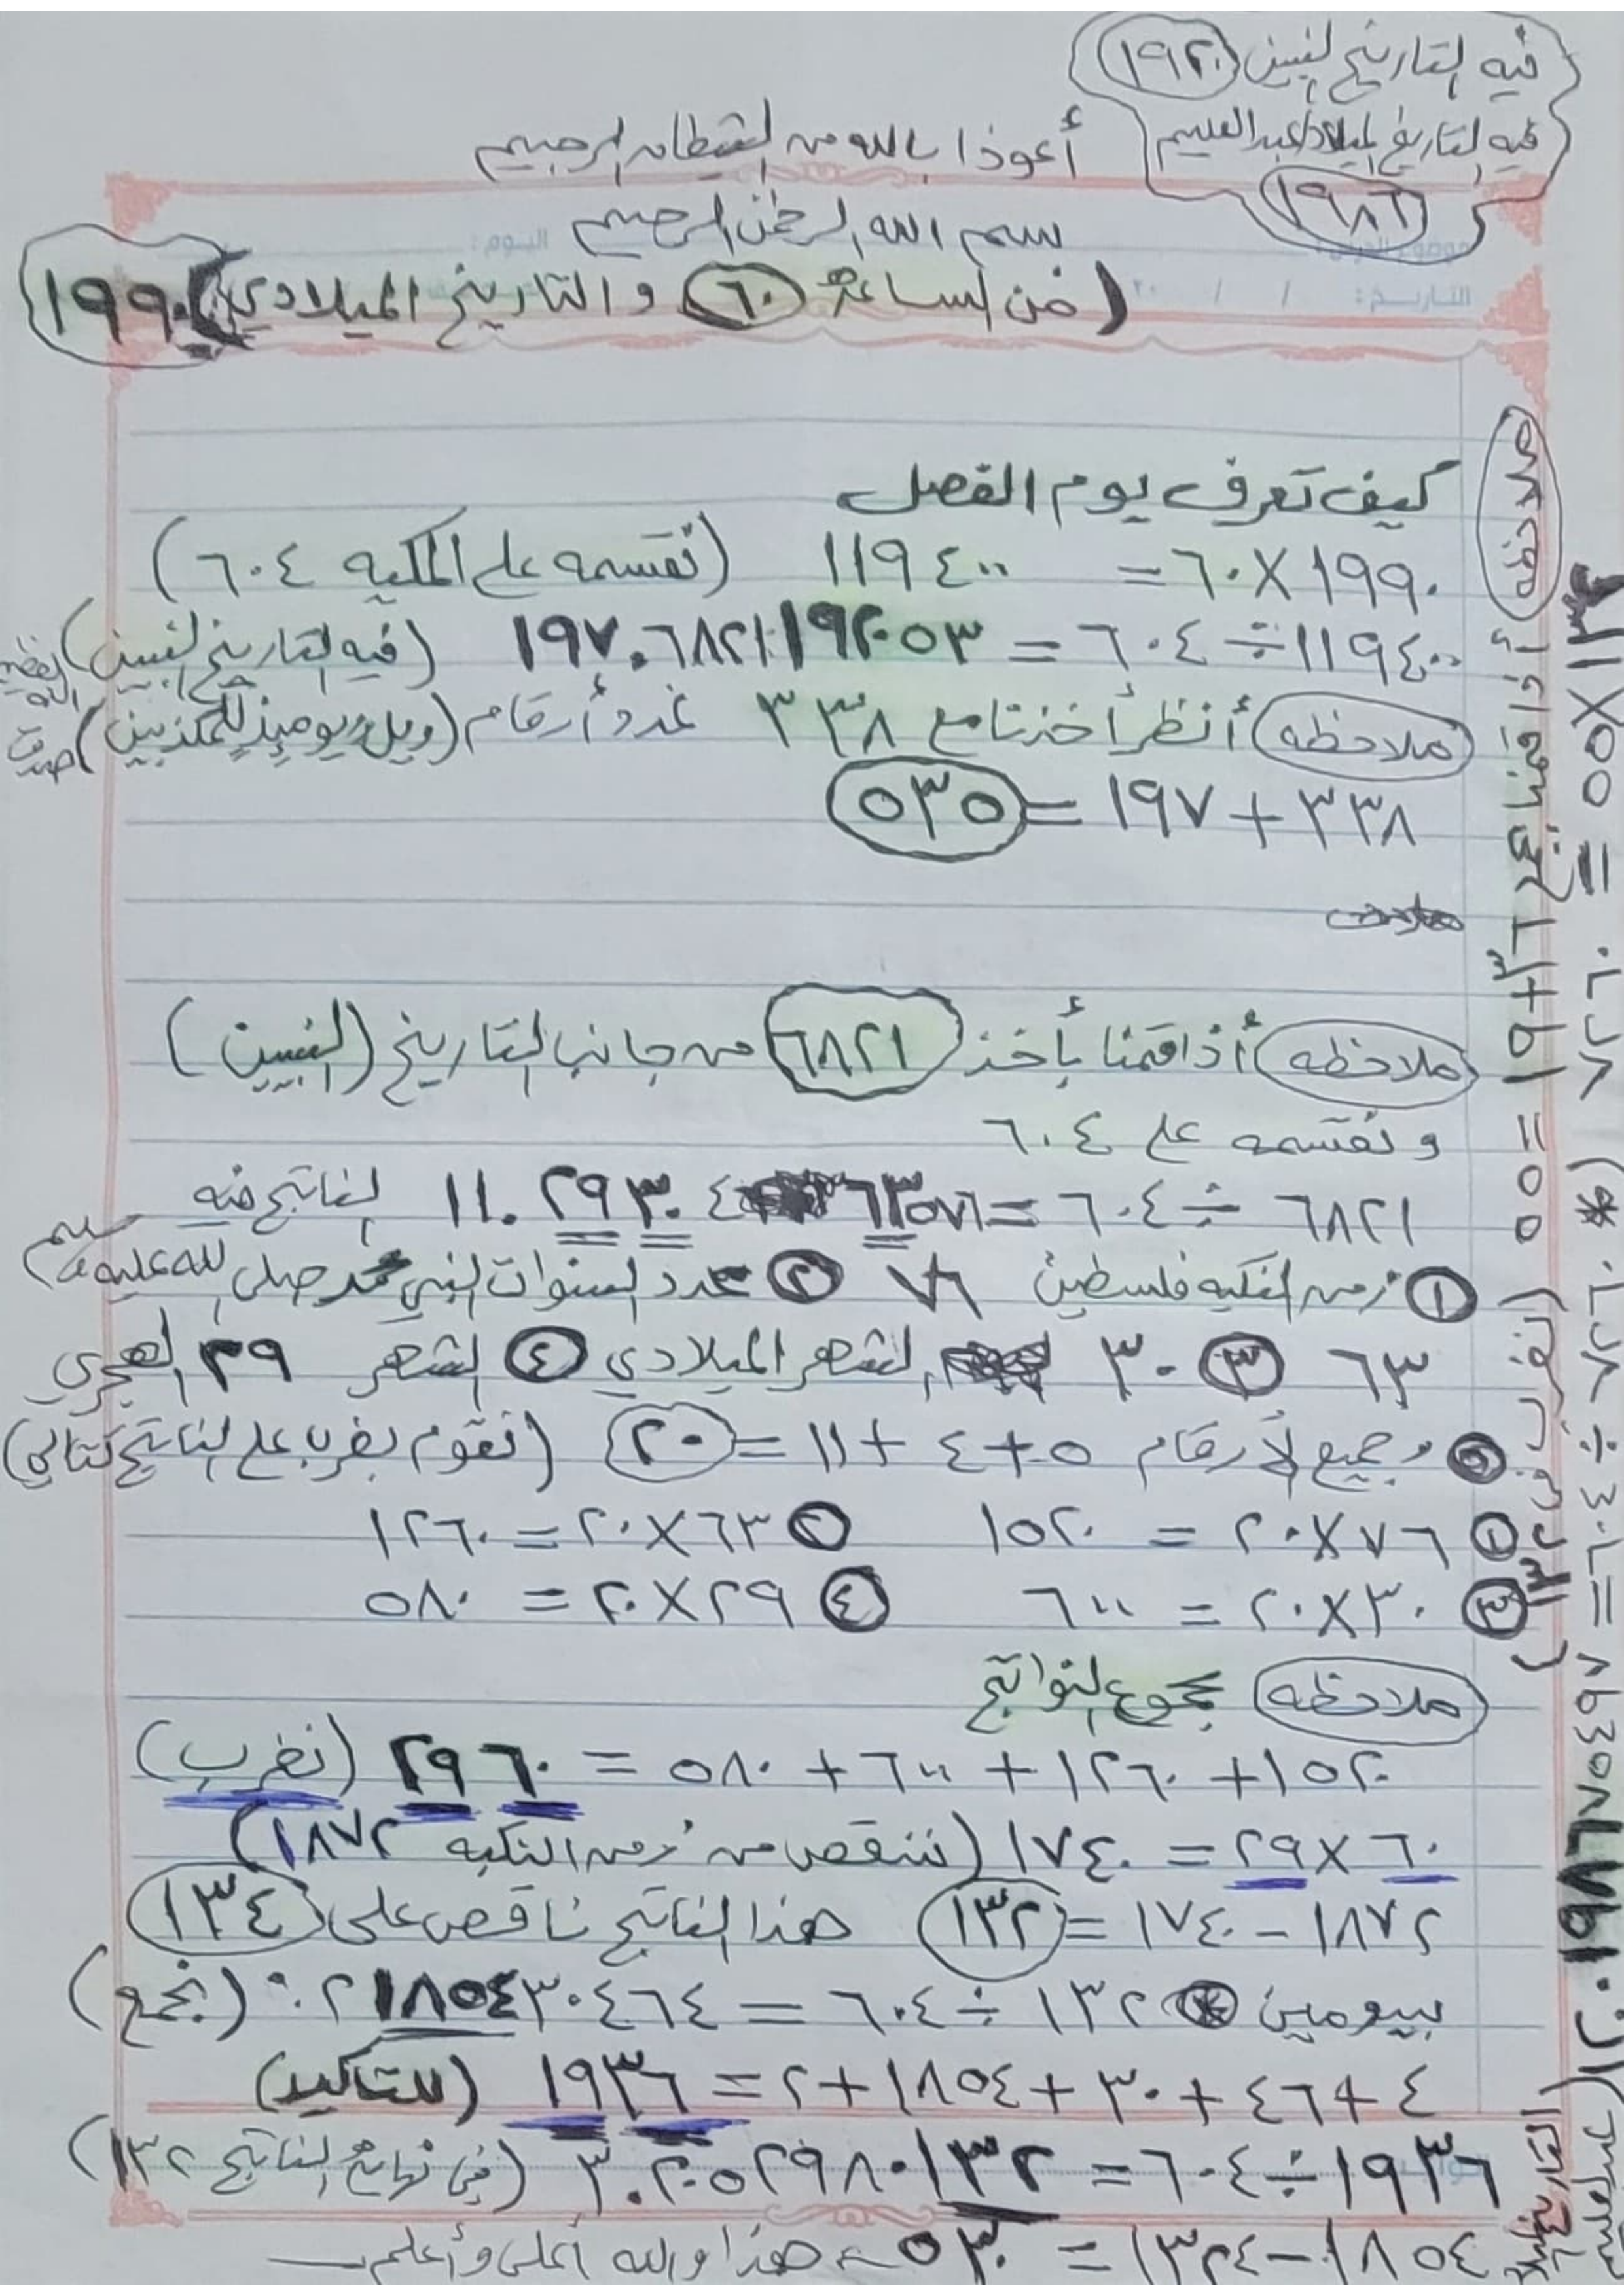 فيه التاريخ النبيين (١٩٢٠)
فيه التاريخ الميلاد عبدالعليم
(١٩٨٦)
أعوذا بالله من الشيطان الرجيم
بسم الله الرحمن الرحيم
(من الساعة ٦٠ و التاريخ الميلادي) ١٩٩٠
كيف تعرف يوم الفصل
١٩٩٠ × ٦٠ = ١١٩٤٠٠ (نقسمه على المكيه ٦٠٤)
١١٩٤٠٠ ÷ ٦٠٤ = ١٩٧.٦٨٢١١٩٢٠٥٣ (فيه التاريخ النبيين)
ملاحظه أنظر أخذنا مع ٣٣٨ عدد أرقام (ويل يومئذ للمكذبين)
٣٣٨ + ١٩٧ = ٥٣٥
ملاحظه أذا قمنا بأخذ ٦٨٢١ من جانب التاريخ (النبيين)
و نقسمه على ٦٠٤
٦٨٢١ ÷ ٦٠٤ = ١١.٢٩٣٠٤٦٣٥٧٦ الناتج فيه
① زمن النكبه فلسطين ٧٦ ② عدد السنوات النبي محمد صلى الله عليه و سلم
٦٣ ③ ٣٠ الشهر الميلادي ④ الشهر ٢٩ الهجري
⑤ وجميع الأرقام ٥ + ٤ + ١١ = ٢٠ (نقوم بضربا على الناتج كتالي)
① ٧٦ × ٢٠ = ١٥٢٠ ② ٦٣ × ٢٠ = ١٢٦٠
③ ٣٠ × ٢٠ = ٦٠٠ ④ ٢٩ × ٢٠ = ٥٨٠
ملاحظه مجموع النواتج
١٥٢٠ + ١٢٦٠ + ٦٠٠ + ٥٨٠ = ٢٩٦٠ (نضرب)
٦٠ × ٢٩ = ١٧٤٠ (ننقص من زمن النكبه ١٨٧٢)
١٨٧٢ - ١٧٤٠ = ١٣٢ هذا الناتج ناقص على ١٣٤
بيومين ١٣٢ ÷ ٦٠٤ = ٠.٢١٨٥٤٣٠٤٦٤ (نجمع)
٤ + ٤٦ + ٣٠ + ١٨٥٤ + ٢ = ١٩٣٦ (للتاكيد)
١٩٣٦ ÷ ٦٠٤ = ٣.٢٠٥٢٩٨٠١٣٢ (في نهاية الناتج ١٣٢)
١٨٥٤ - ١٣٢٤ = ٥٣٠ هذا والله أعلى وأعلم
ملاحظه أذا قمنا بجمع ٣٦ + ١٩ = ٥٥ (الضرب في ١٣٢)
١٣٢ × ٥٥ = ٧٢٦٠ * ٧٢٦٠ ÷ ٦٠٤ = ١٢.٠١٩٨٦٧٥٤٩٧